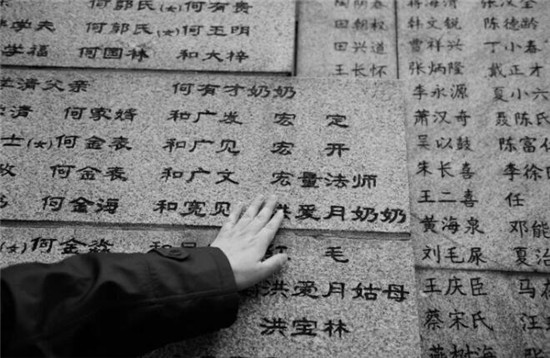 何郭氏(女) 何有贵
学夫 何郭氏(女) 何玉明
学福 何园林 和大梓
学清父亲 何有才奶奶
学清 何家婿 和广发 宏 定
士(女) 何金表 和广见 宏 开
何金表 和广文 宏量法师
何金海 和宽见 洪爱月奶奶
何金 毛
洪爱月姑母
洪宝林
陶阴春
田朝权
田兴道
王长怀
蒋海清 张汉全
韩文锐 陈德龄
曹祥兴 丁小春
张炳隆 戴正才
李永源 夏小六
萧汉奇 聂陈氏
吴以鼓 陈富
朱长喜 李徐
王二喜 任
黄海泉 邓能
刘毛屎 夏治
王庆臣 马
蔡宋氏 汪